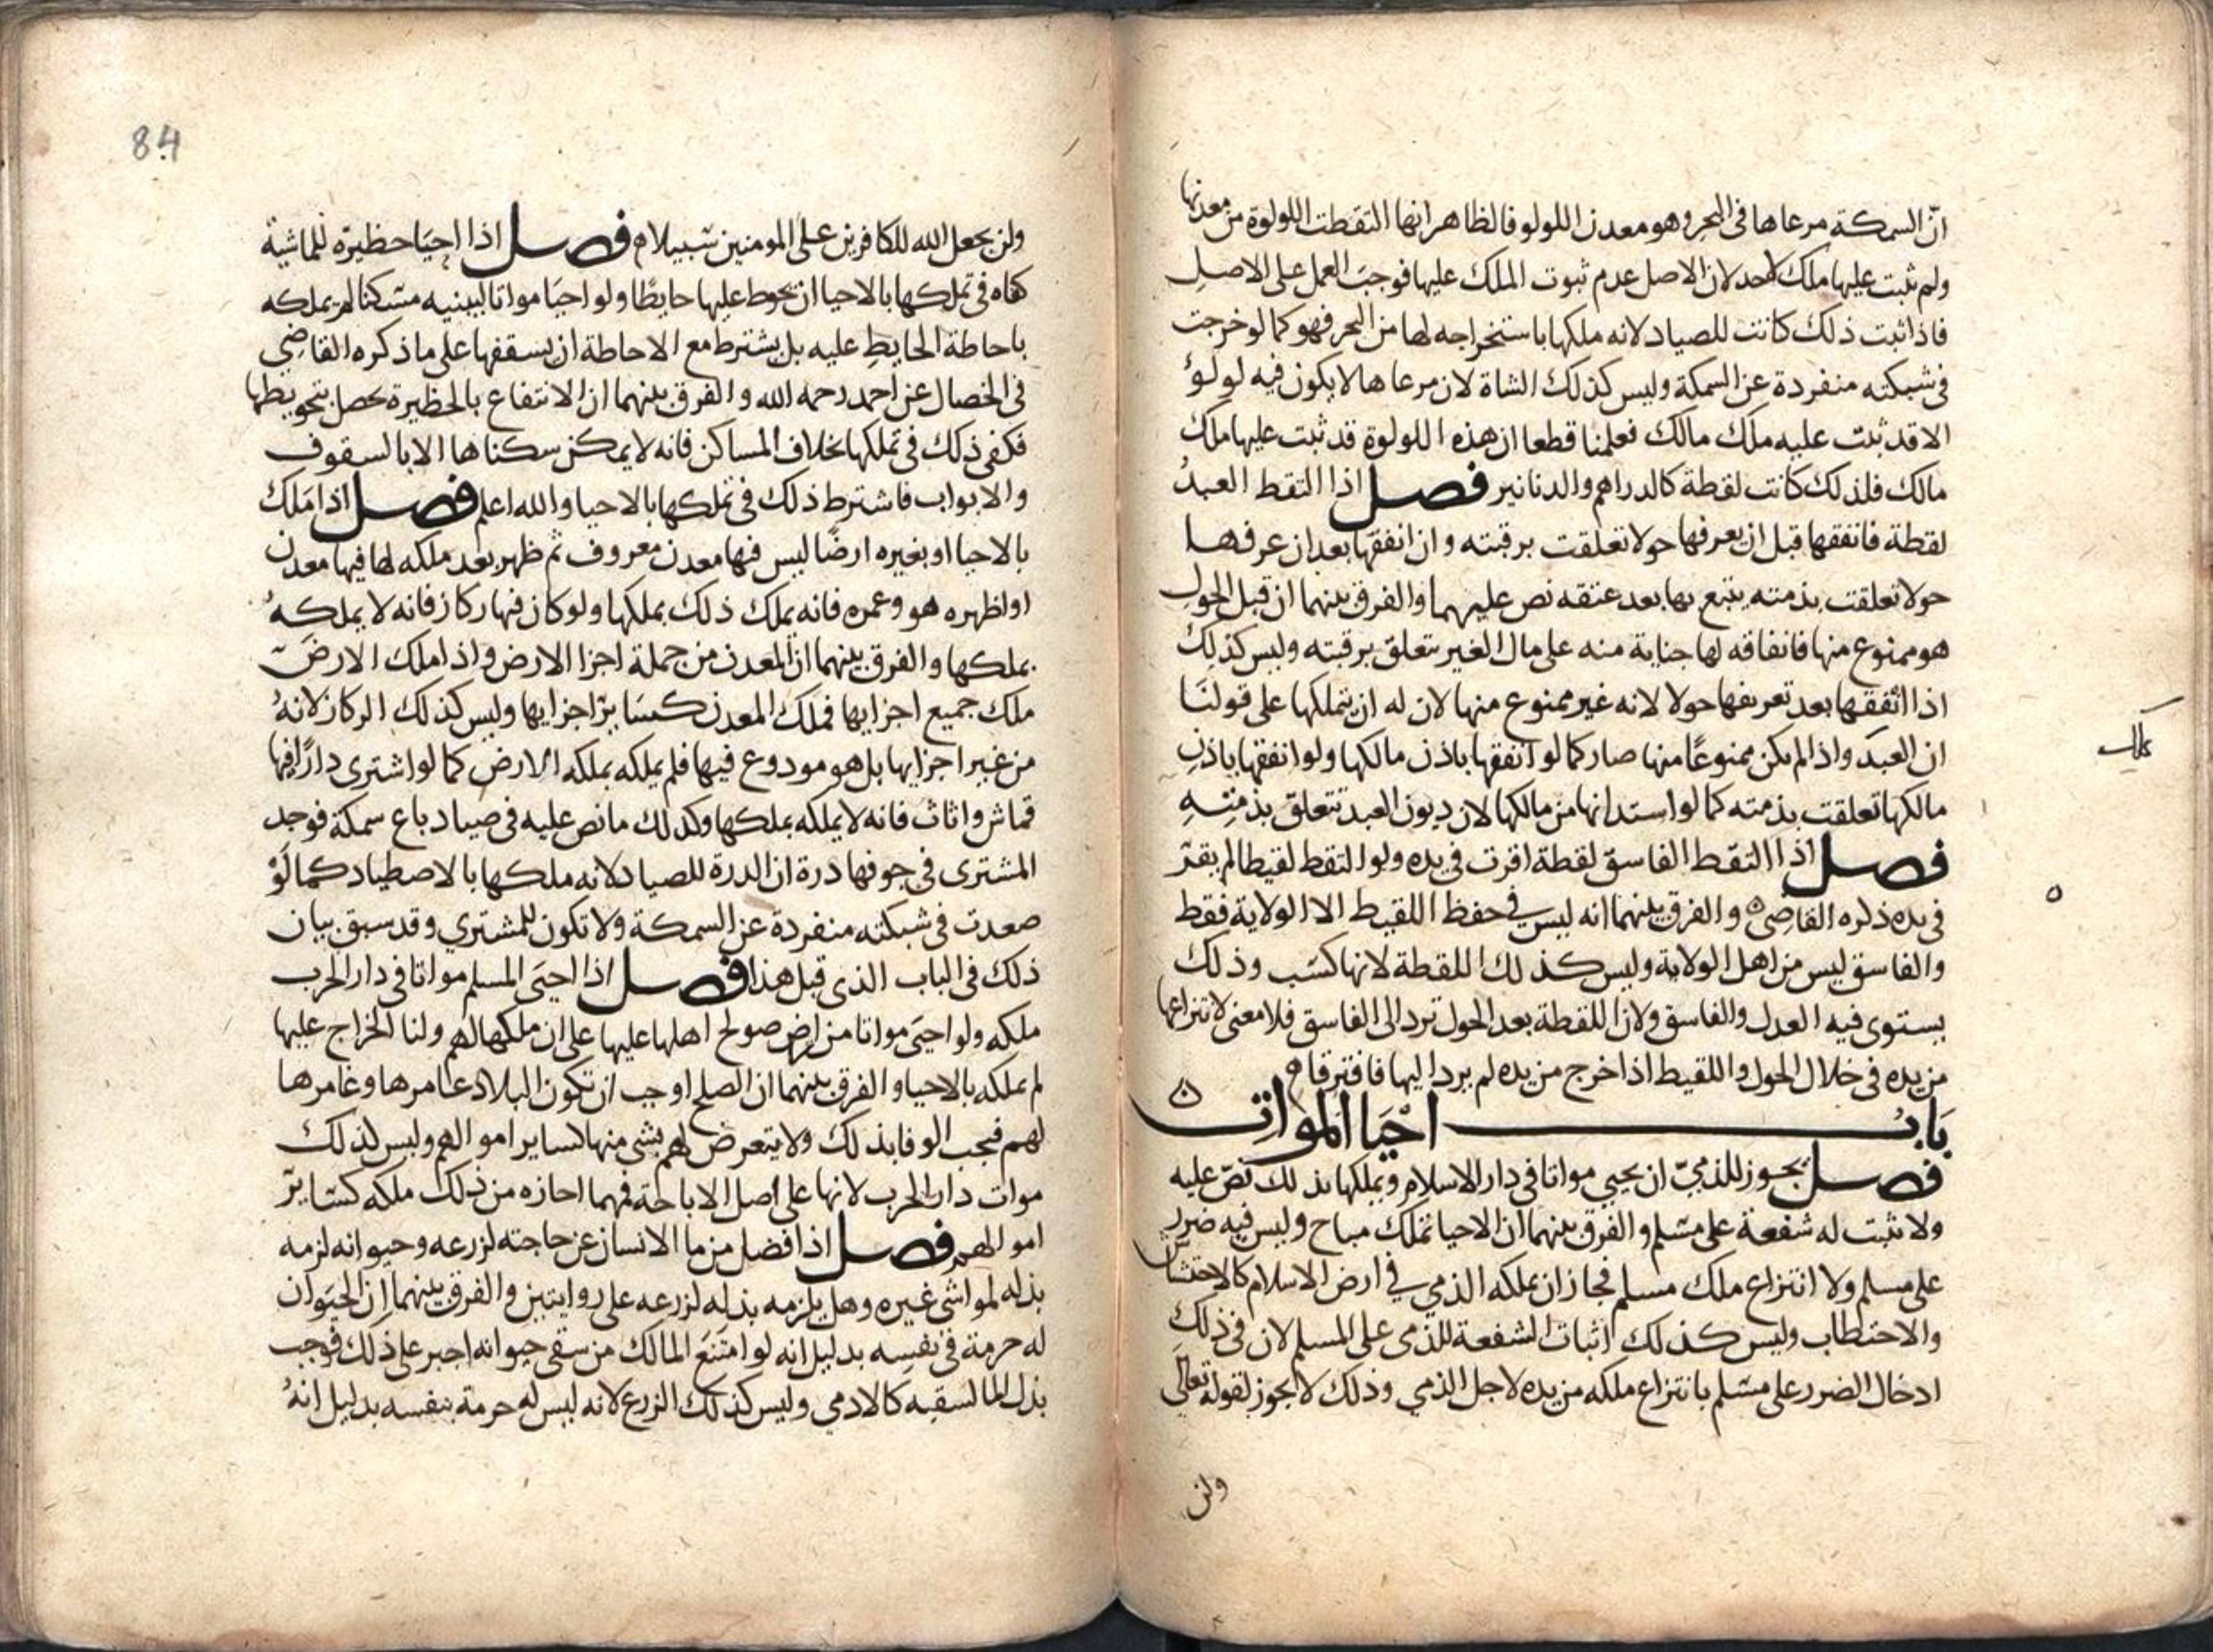 ان السمكة مرعاها فى البحر وهو معدن اللولو فالظاهر انها التقطت اللولوة من معدنها
ولم ثبت عليها ملك لاحد لان الاصل عدم ثبوت الملك عليها فوجب العمل على الاصل
فاذا ثبت ذلك كانت للصياد لانه ملكها باستخراجه لها من البحر فهو كما لو خرجت
فى شبكته منفردة عن السمكة وليس كذلك الشاة لان مرعاها لا يكون فيه لولؤ
الا قد ثبت عليه ملك مالك فعلمنا قطعا ان هذه اللولوة قد ثبت عليها ملك
مالك فلذلك كانت لقطة كالدراهم والدنانير فصل اذا التقط العبد
لقطة فانفقها قبل ان يعرفها حولا تعلقت برقبته وان انفقها بعد ان عرفها
حولا تعلقت بذمته يتبع بها بعد عتقه نص عليهما والفرق بينهما ان قبل الحول
هو ممنوع منها فانفاقه لها جناية منه على مال الغير يتعلق برقبته وليس كذلك
اذا انفقها بعد تعريفها حولا لانه غير ممنوع منها لان له ان يتملكها على قولنا
ان العبد واذا لم يكن ممنوعا منها صار كما لو انفقها باذن مالكها ولو انفقها باذن
مالكها تعلقت بذمته كما لو استدانها من مالكها لان ديون العبد تتعلق بذمته
فصل اذا التقط الفاسق لقطة اقرت فى يده ولو التقط لقيطا لم يقر
فى يده ذكره القاضى ه والفرق بينهما انه ليس في حفظ اللقيط الا الولاية فقط
والفاسق ليس من اهل الولاية وليس كذلك اللقطة لانها كسب وذلك
يستوى فيه العدل والفاسق ولان اللقطة بعد الحول ترد الى الفاسق فلا معنى لانتزاعها
من يده فى خلال الحول واللقيط اذا خرج من يده لم يرد اليها فافترقا ه
باب احيا الموات ه
فصل يجوز للذمي ان يحيي مواتا فى دار الاسلام ويملكها بذلك نص عليه
ولا تثبت له شفعة على مسلم والفرق بينهما ان الاحيا تملك مباح وليس فيه ضرر
على مسلم ولا انتزاع ملك مسلم فجاز ان يملكه الذمي في ارض الاسلام كالاحتشاش
والاحتطاب وليس كذلك اثبات الشفعة للذمى على المسلم لان فى ذلك
ادخال الضرر على مسلم بانتزاع ملكه من يده لاجل الذمي وذلك لا يجوز لقوله تعالى
ولن
ه
84
ولن يجعل الله للكافرين على المومنين سبيلا ه فصل اذا احيا حظيرة للماشية
كفاه فى تملكها بالاحيا ان يحوط عليها حايطا ولو احيا مواتا ليبنيه مسكنا لم يملكه
باحاطة الحايط عليه بل يشترط مع الاحاطة ان يسقفها على ما ذكره القاضي
فى الخصال عن احمد رحمه الله والفرق بينهما ان الانتفاع بالحظيرة يحصل بتحويطها
فكفى ذلك فى تملكها بخلاف المساكن فانه لا يمكن سكناها الا بالسقوف
والابواب فاشترط ذلك فى تملكها بالاحيا والله اعلم فصل اذا ملك
بالاحيا او بغيره ارضا ليس فيها معدن معروف ثم ظهر بعد ملكه لها فيها معدن
او اظهره هو وعمره فانه يملك ذلك بملكها ولو كان فيها ركاز فانه لا يملكه
بملكها والفرق بينهما ان المعدن من جملة اجزا الارض واذا ملك الارض
ملك جميع اجزايها فملك المعدن كساير اجزايها وليس كذلك الركاز لانه
من غير اجزايها بل هو مودوع فيها فلم يملكه بملكه الارض كما لو اشترى دارا فيها
قماش واثاث فانه لا يملكه بملكها وكذلك ما نص عليه فى صياد باع سمكة فوجد
المشترى فى جوفها درة ان الدرة للصياد لانه ملكها بالاصطياد كما لو
صعدت فى شبكته منفردة عن السمكة ولا تكون للمشتري وقد سبق بيان
ذلك فى الباب الذى قبل هذا فصل اذا احيى المسلم مواتا فى دار الحرب
ملكه ولو احيى مواتا من ارض صولح اهلها عليها على ان ملكها لهم ولنا الخراج عليها
لم يملكه بالاحيا والفرق بينهما ان الصلح اوجب ان تكون البلاد عامرها وغامرها
لهم فيجب الوفا بذلك ولا يتعرض لهم بشى منها كساير اموالهم وليس كذلك
موات دار الحرب لانها على اصل الاباحة فمهما احازه من ذلك ملكه كساير
اموالهم فصل اذا فضل من ما الانسان عن حاجته لزرعه وحيوانه لزمه
بذله لمواشى غيره وهل يلزمه بذله لزرعه على روايتين والفرق بينهما ان الحيوان
له حرمة فى نفسه بدليل انه لو امتنع المالك من سقى حيوانه اجبر على ذلك فوجب
بذل الما لسقيه كالادمى وليس كذلك الزرع لانه ليس له حرمة بنفسه بدليل انه